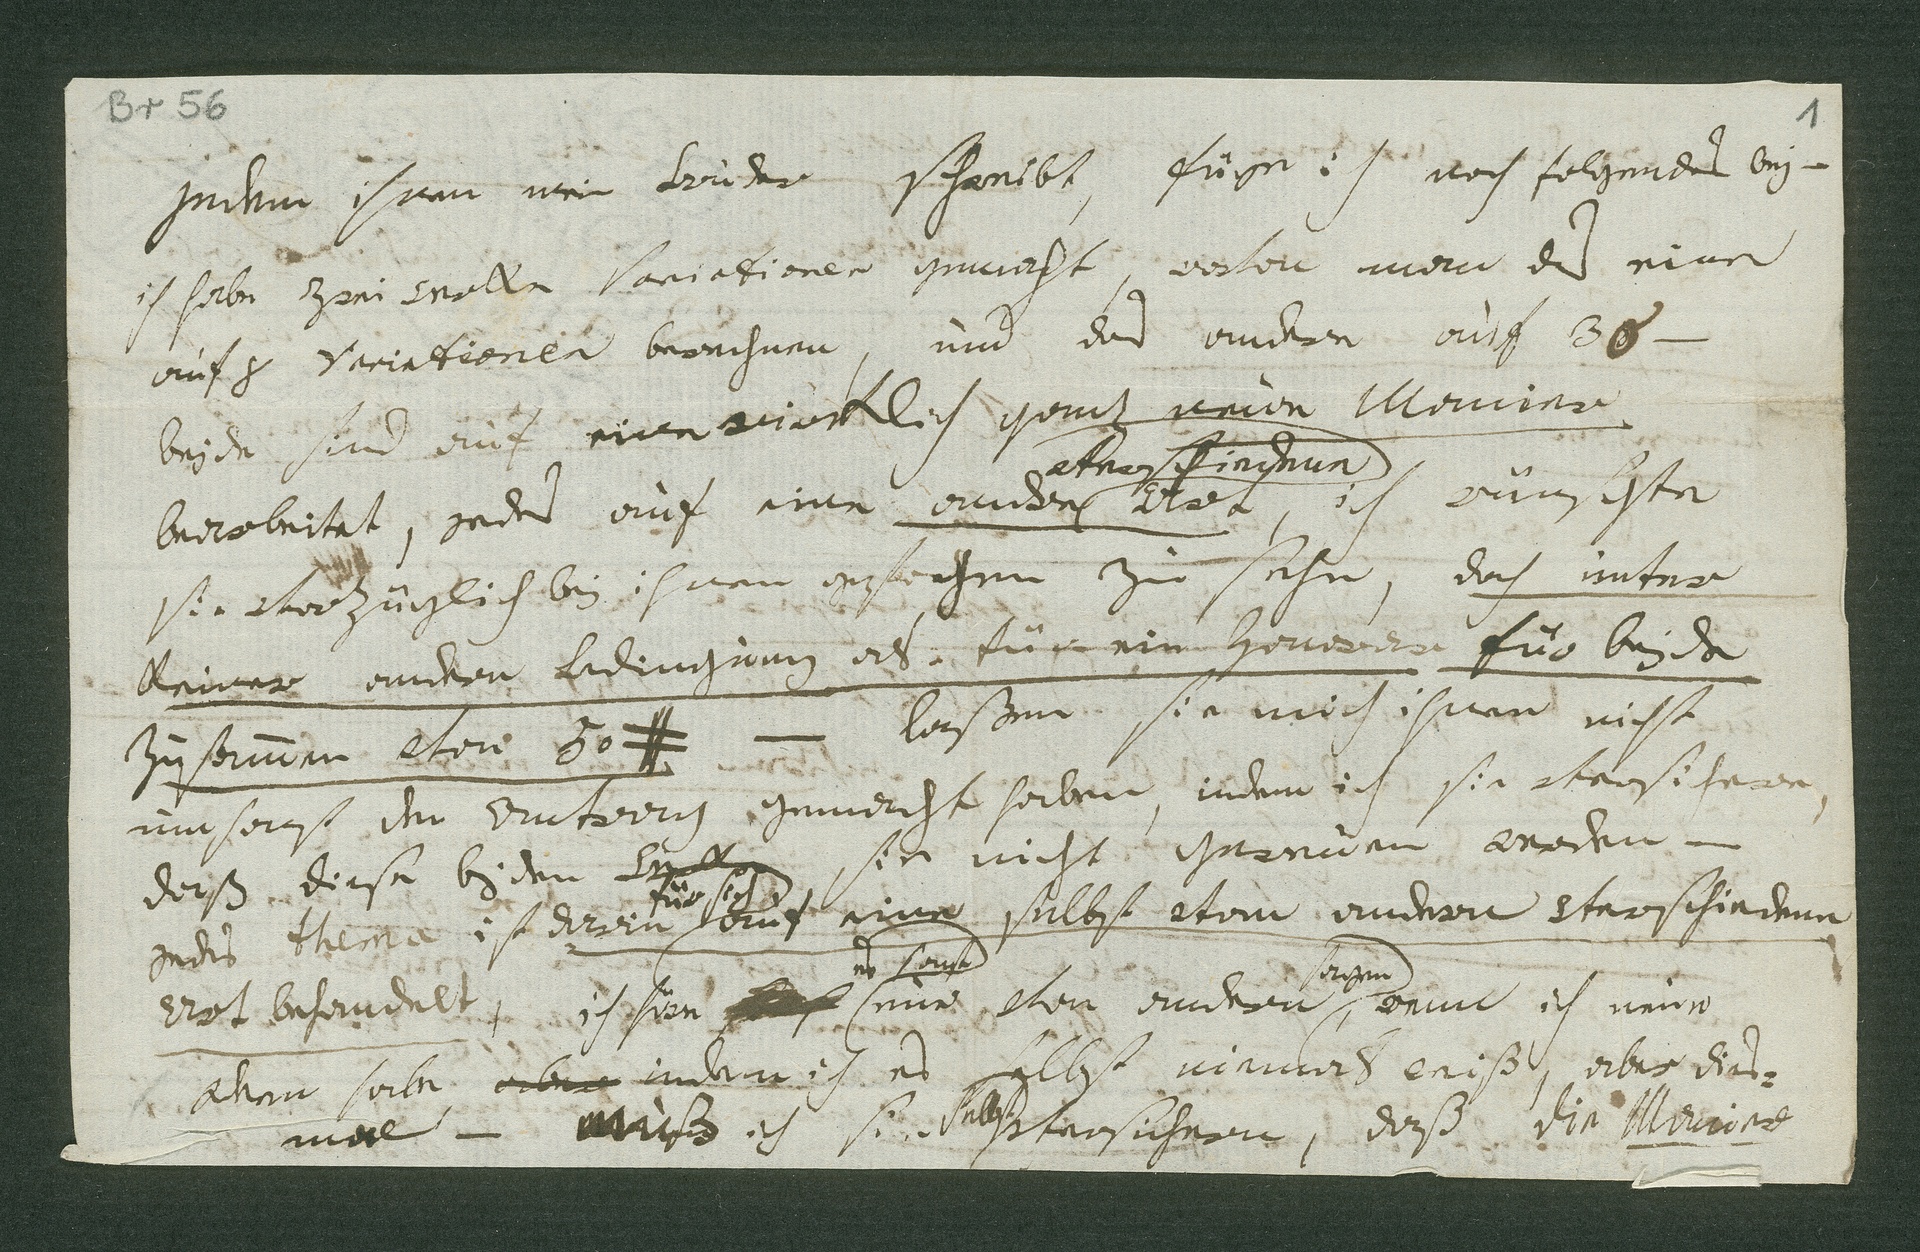 Br 56
1
indem ihnen mein Bruder schreibt, füge ich noch folgendes bej –
ich habe zwei Werke Variationen gemacht, wovon man das eine
auf 8 Variationen berechnen, und das andere auf 30 –
beide sind auf eine wirklich ganz neue Manier
verschiedene
bearbeitet, jedes auf eine andre Art, ich wünschte
sie vorzüglich bej ihnen gestochen zu sehn, doch unter
keiner andern Bedingung als für ein Honorar für beide
zusammen von 50 # — laßen sie mich ihnen nicht
umsonst den Antrag gemacht haben, indem ich sie versichere,
daß diese bejden Werke sie nicht gereuen werden —
für sich
jedes thema ist darin auf eine selbst vom andern verschiedene
es sonst
sagen
Art behandelt, ich höre nur von andern, wenn ich neue
Ideen habe, aber indem ich es selbst niemals weiß, aber dies=
mal — muß ich sie selbst versichern, daß die Manier